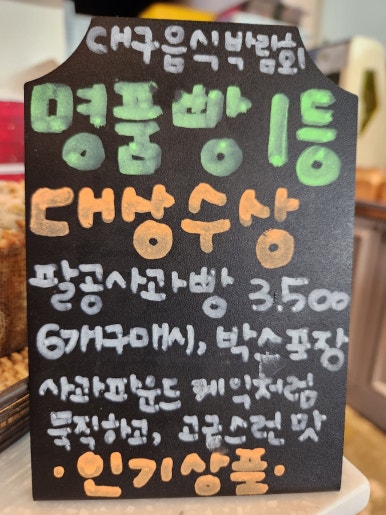 대구음식박람회
명품빵 1등
대상수상
팔공사과빵 3.500
6개구매시, 박스포장
사과파운드 케익처럼
묵직하고, 고급스런 맛
·인기상품·